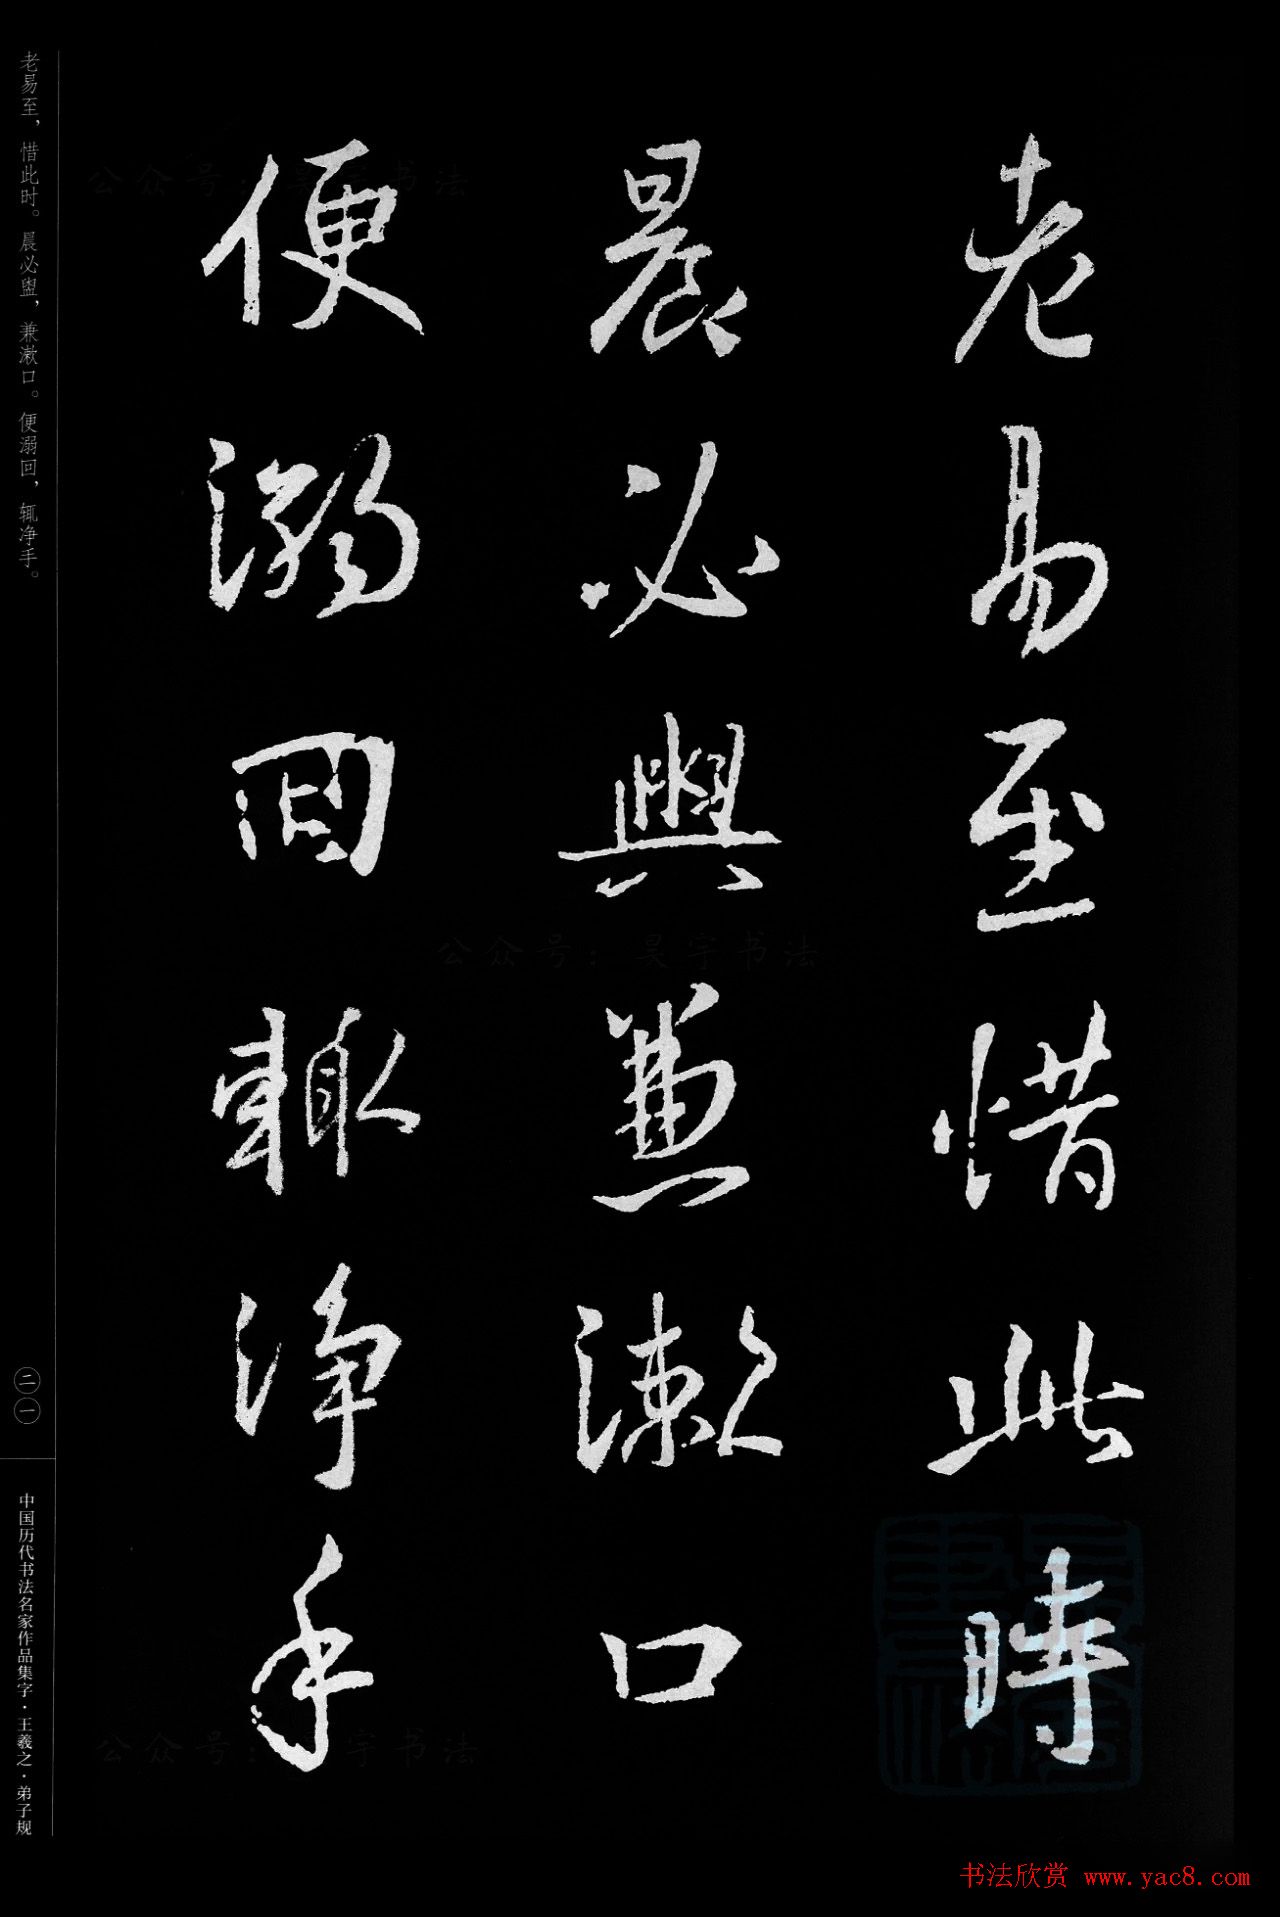 老易至惜此時
晨必盥兼漱口
便溺回輒淨手
老易至，惜此时。晨必盥，兼漱口。便溺回，辄净手。
二一
中国历代书法名家作品集字·王羲之·弟子规
公众号：昊宇书法
公众号：昊宇书法
公众号：昊宇书法
书法欣赏 www.yac8.com